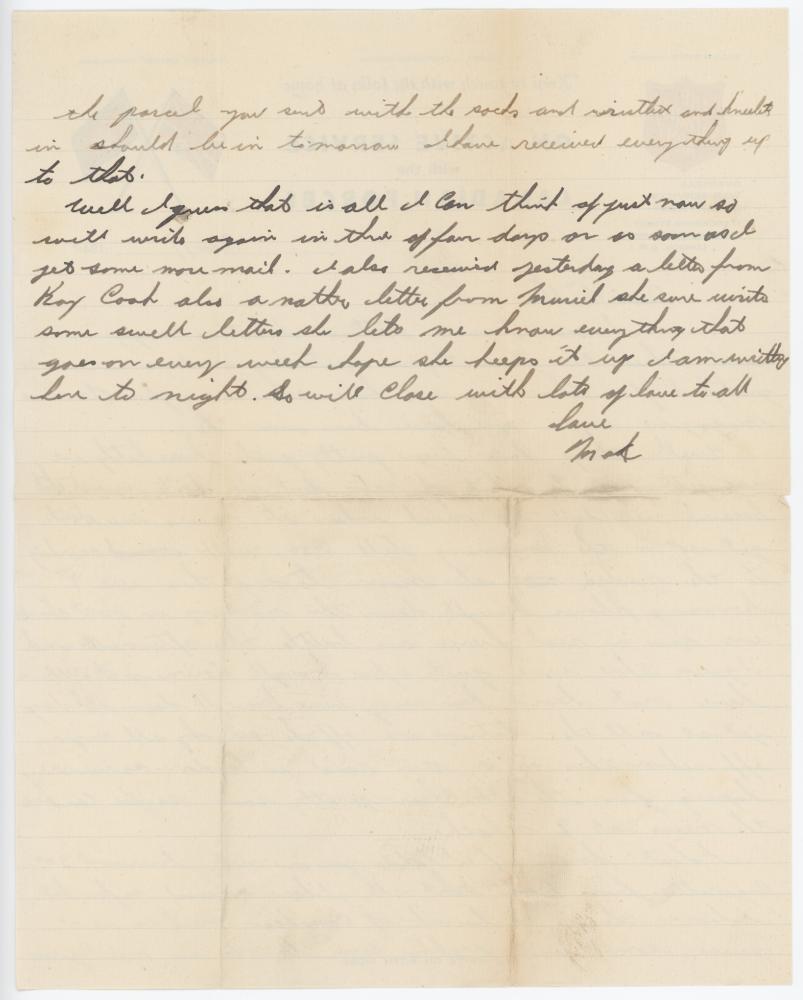 the parcel you sent with the socks and wristlets and kneelets
in should be in tomorrow I have received everything up
to that.
Well I guess that is all I can think of just now so
will write again in three of four days or as soon as I
get some more mail. I also received yesterday a letter from
Kay Cook also a nather letter from Muriel she sure writes
some swell letters she lets me know everything that
goes on every week hope she keeps it up I am writting
her to night. So will close with lots of love to all
love